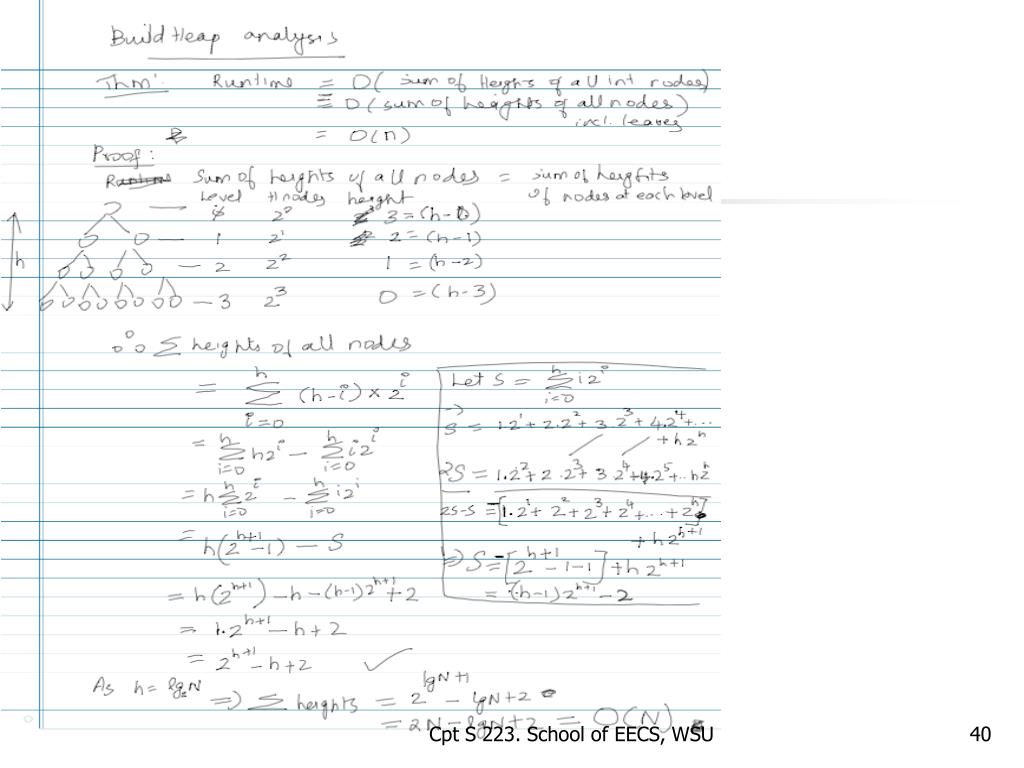 Build Heap analysis
Thm: Runtime = O( sum of Heights of all int nodes)
= O(sum of heights of all nodes)
incl. leaves
= O(n)
Proof:
Sum of heights of all nodes = sum of heights
of nodes at each level
Level # nodes height
0 2^0 3 = (h-0)
1 2^1 2 = (h-1)
h
2 2^2 1 = (h-2)
3 2^3 0 = (h-3)
∴ ∑ heights of all nodes
= ∑_{i=0}^{h} (h-i) × 2^i
= ∑_{i=0}^{h} h2^i - ∑_{i=0}^{h} i2^i
= h ∑_{i=0}^{h} 2^i - ∑_{i=0}^{h} i2^i
= h(2^{h+1}-1) - S
= h(2^{h+1}) - h - (h-1)2^{h+1} + 2
= 1.2^{h+1} - h + 2
= 2^{h+1} - h + 2 ✓
Let S = ∑_{i=0}^{h} i2^i
=> S = 1.2^1 + 2.2^2 + 3.2^3 + 4.2^4 + ...
+ h2^h
2S = 1.2^2 + 2.2^3 + 3.2^4 + 4.2^5 + .. h2^h
2S-S = -[1.2^1 + 2^2 + 2^3 + 2^4 + ... + 2^h]
+ h2^{h+1}
=> S = -[2^{h+1} - 1 - 1] + h2^{h+1}
= (h-1)2^{h+1} - 2
As h = lg_2 N => ∑ heights = 2^{lgN+1} - lgN + 2
= 2N - lgN + 2 = O(N)
Cpt S 223. School of EECS, WSU
40